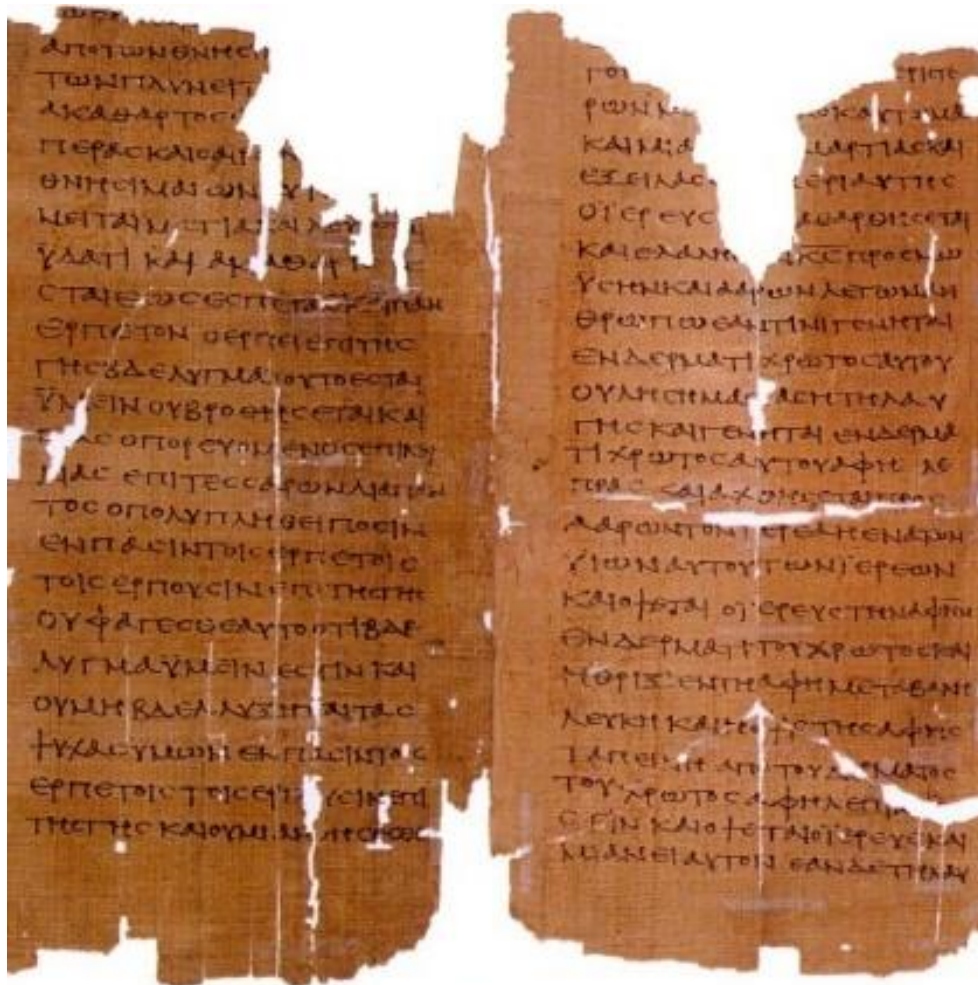 ΑΠΟΤΩΝΘΝΗΣΙ
ΤΩΝΠΛΥΝΕΙΤ
ΑΚΑΘΑΡΤΟΣ
ΠΕΡΑΣΚΑΙΟΑΙ
ΘΝΗΣΙΜΑΙΩΝ
ΜΕΙΤΑΙΜΑΤΙΑΚΑΙΛΟΥ
ΫΔΑΤΙΚΑΙΑΚΑΘΑΡ
ΣΤΑΙΕΩΣΕΣΠΕΡΑΣΚΑΙΠΑΝ
ΕΡΠΕΤΟΝΟΕΡΠΕΙΕΠΙΤΗΣ
ΓΗΣΒΔΕΛΥΓΜΑΤΟΥΤΟΕΣΤΑΙ
ΫΜΕΙΝΟΥΒΡΩΘΗΣΕΤΑΙΚΑΙ
ΠΑΣΟΠΟΡΕΥΟΜΕΝΟΣΕΠΙΚΟΙ
ΛΙΑΣΕΠΙΤΕΣΣΑΡΩΝΔΙΑΠΑΝ
ΤΟΣΟΠΟΛΥΠΛΗΘΕΙΠΟΣΙΝ
ΕΝΠΑΣΙΝΤΟΙΣΕΡΠΕΤΟΙΣ
ΤΟΙΣΕΡΠΟΥΣΙΝΕΠΙΤΗΣΓΗΣ
ΟΥΦΑΓΕΣΘΕΑΥΤΟΟΤΙΒΔΕ
ΛΥΓΜΑΫΜΕΙΝΕΣΤΙΝΚΑΙ
ΟΥΜΗΒΔΕΛΛΥΞΗΤΑΙΤΑΣ
ΨΥΧΑΣΥΜΩΝΕΝΠΑΣΙΝΤΟΙΣ
ΕΡΠΕΤΟΙΣΤΟΙΣΕΡΠΟΥΣΙΝΕΠΙ
ΤΗΣΓΗΣΚΑΙΟΥΜΙΑΝΘΗΣΕΣΘΕ
ΓΟ ΕΡΙΣΤΕ
ΡΩΝΜ ΟΚΑΥΤΩΜΑ
ΚΑΙΜΙΑ ΜΑΡΤΙΑΣΚΑΙ
ΕΞΕΙΛΑΣ ΕΡΙΑΥΤΗΣ
ΟΪΕΡΕΥΣ ΑΘΑΡΘΗΣΕΤΑΙ
ΚΑΙΕΛΑΛΗ ΚΣΠΡΟΣΜΩ
ΫΣΗΝΚΑΙΑΑΡΩΝΛΕΓΩΝΑΝ
ΘΡΩΠΩΕΑΝΤΙΝΙΓΕΝΗΤΑΙ
ΕΝΔΕΡΜΑΤΙΧΡΩΤΟΣΑΥΤΟΥ
ΟΥΛΗΣΗΜΑΣΙΑΣΗΤΗΛΑΥ
ΓΗΣΚΑΙΓΕΝΗΤΑΙΕΝΔΕΡΜΑ
ΤΙΧΡΩΤΟΣΑΥΤΟΥΑΦΗΛΕ
ΠΡΑΣΚΑΙΑΧΘΗΣΕΤΑΙΠΡΟΣ
ΑΑΡΩΝΤΟΝΪΕΡΕΑΗΕΝΑΤΩΝ
ΫΙΩΝΑΥΤΟΥΤΩΝΪΕΡΕΩΝ
ΚΑΙΟΨΕΤΑΙΟΪΕΡΕΥΣΤΗΝΑΦΗΝ
ΕΝΔΕΡΜΑΤΙΤΟΥΧΡΩΤΟΣΚΑΙ
ΗΘΡΙΞΕΝΤΗΑΦΗΜΕΤΑΒΑΛΗ
ΛΕΥΚΗΚΑΙΗΟΨΙΣΤΗΣΑΦΗΣ
ΤΑΠΕΙΝΗΑΠΟΤΟΥΔΕΡΜΑΤΟΣ
ΤΟΥΧΡΩΤΟΣΑΦΗΛΕΠΡΑ
ΕΣΤΙΝΚΑΙΟΨΕΤΑΙΟΪΕΡΕΥΣΚΑΙ
ΜΙΑΝΕΙΑΥΤΟΝΕΑΝΔΕΤΗΛΑΥ